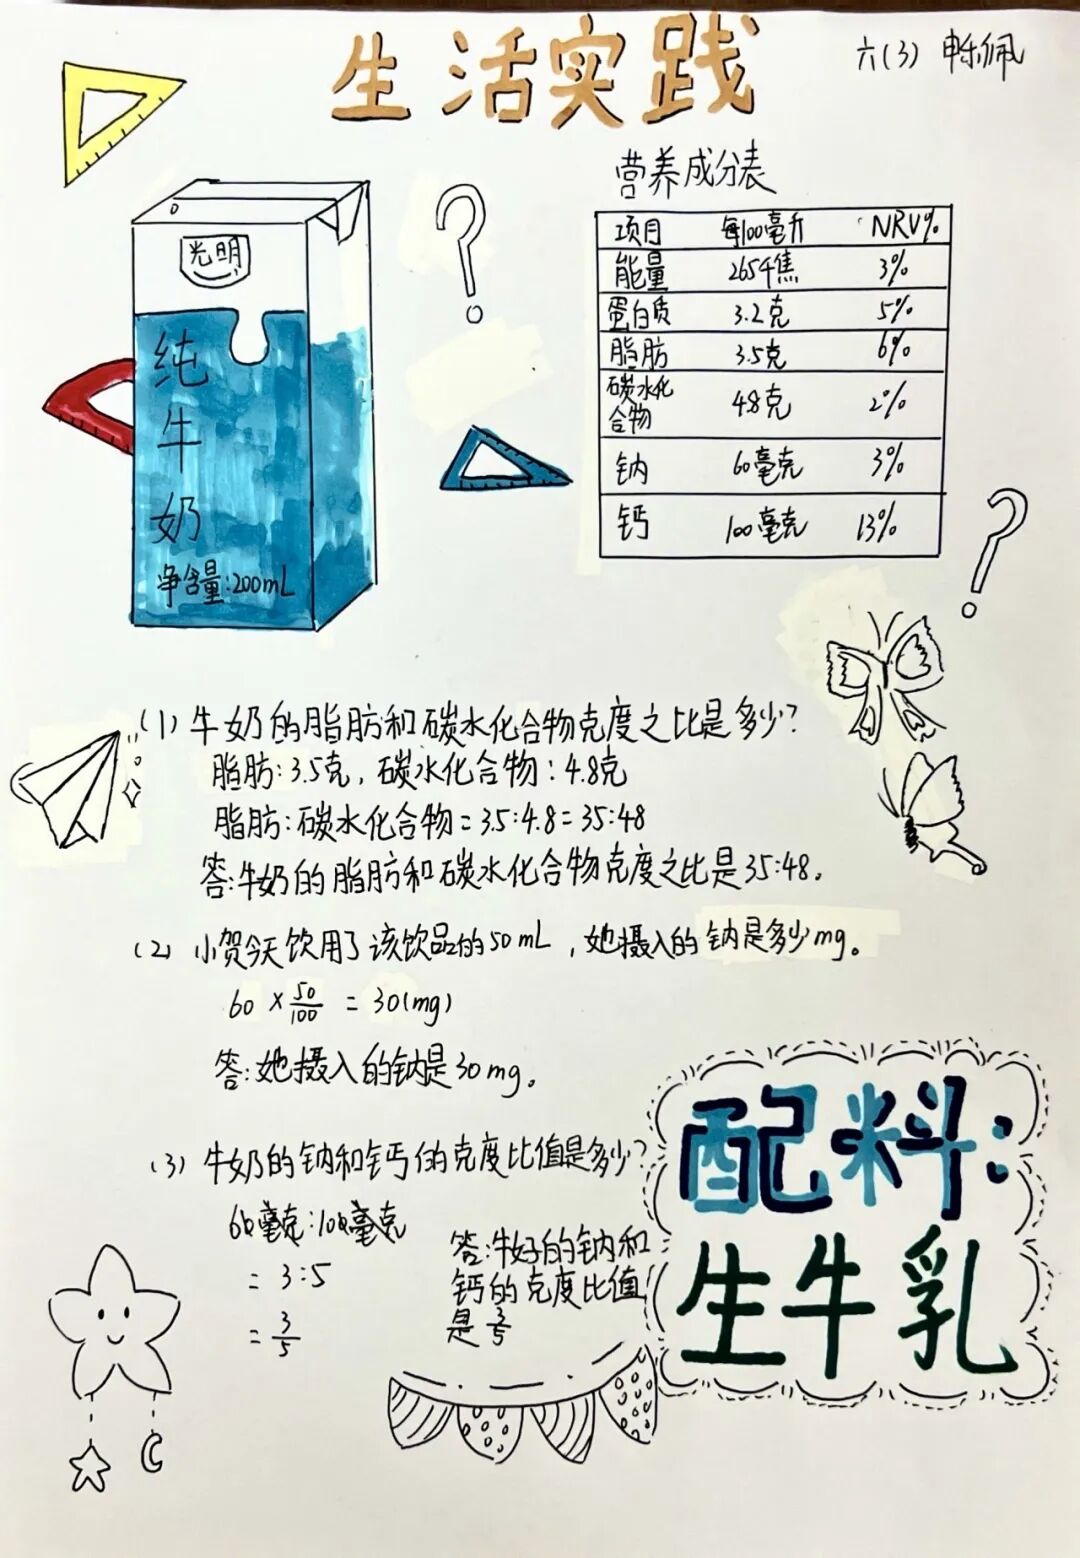 生活实践
六(3) 申乐佩
光明
纯牛奶
净含量:200mL
营养成分表
项目 每100毫升 NRV%
能量 265千焦 3%
蛋白质 3.2克 5%
脂肪 3.5克 6%
碳水化合物 4.8克 2%
钠 60毫克 3%
钙 100毫克 13%
(1) 牛奶的脂肪和碳水化合物克度之比是多少?
脂肪:3.5克,碳水化合物:4.8克
脂肪:碳水化合物=3.5:4.8=35:48
答:牛奶的脂肪和碳水化合物克度之比是35:48。
(2) 小贺今天饮用了该饮品的50mL,她摄入的钠是多少mg。
60×50/100=30(mg)
答:她摄入的钠是30mg。
(3) 牛奶的钠和钙的克度比值是多少?
60毫克:100毫克
=3:5
=3/5
答:牛奶的钠和
钙的克度比值
是3/5
配料:
生牛乳